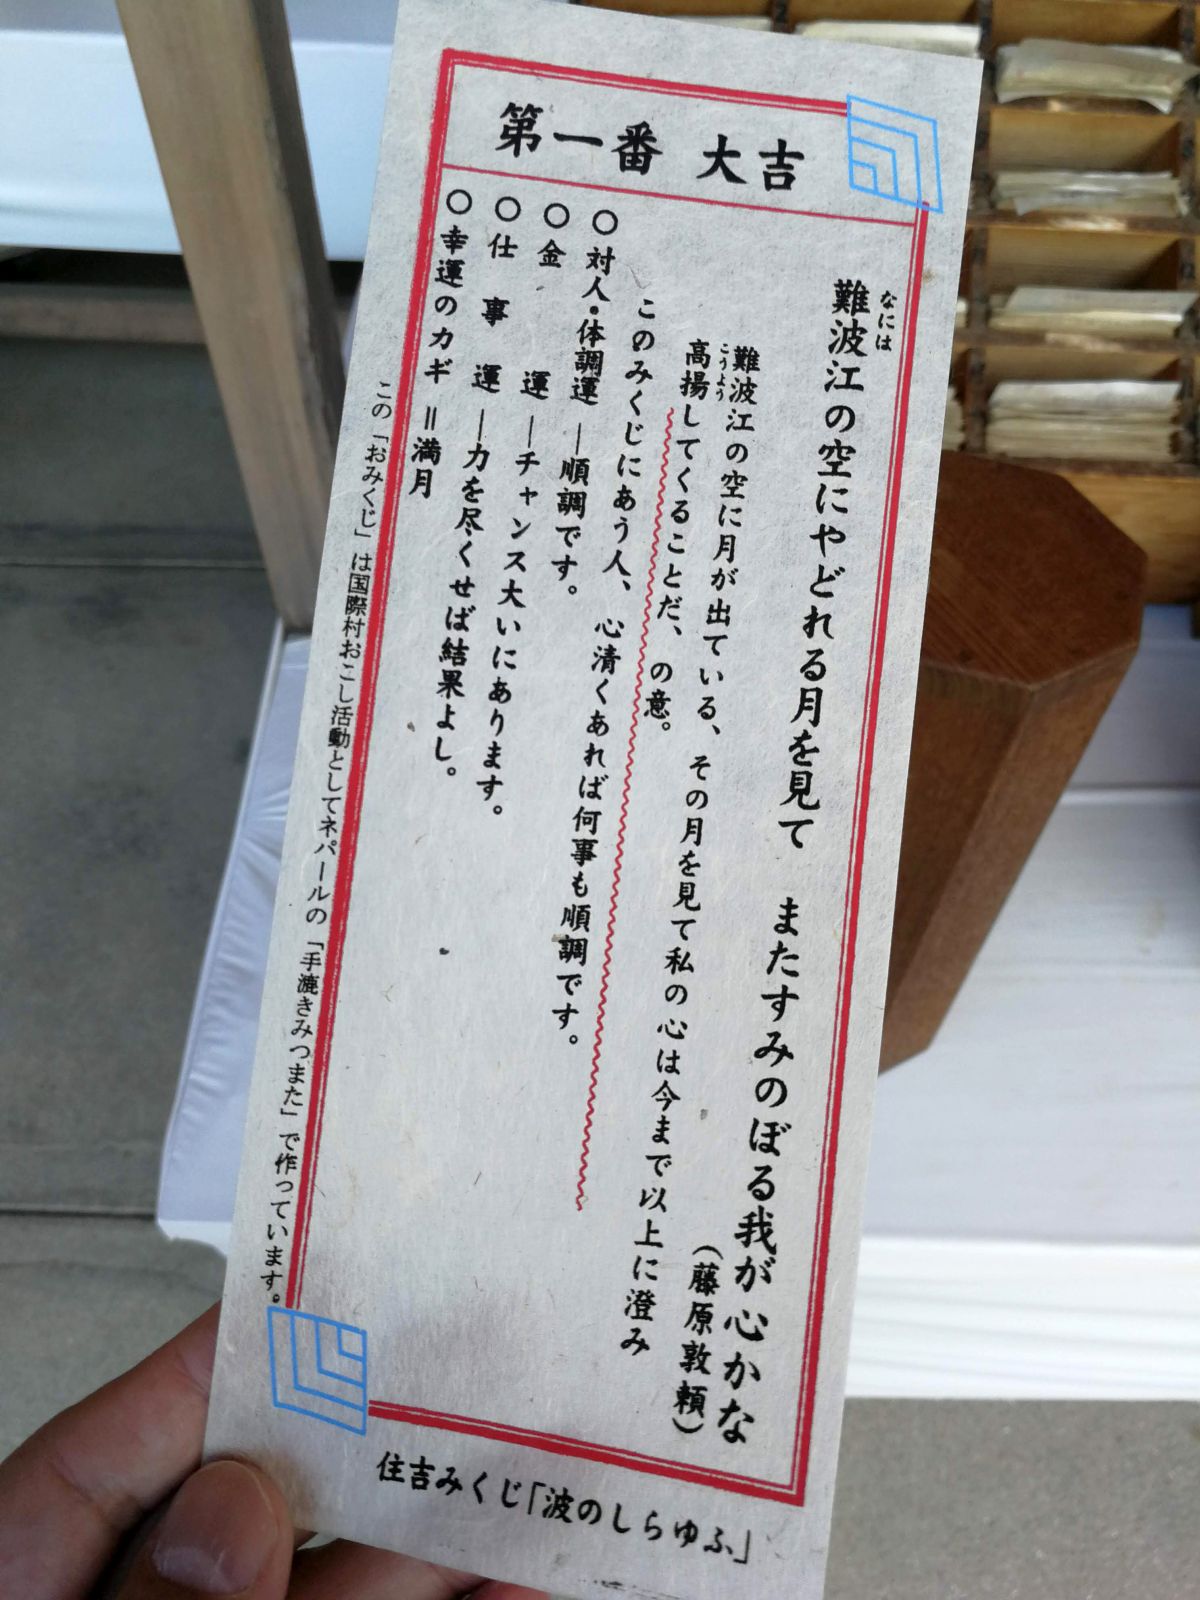 第一番 大吉
難波江の空にやどれる月を見て またすみのぼる我が心かな
なには
(藤原敦頼)
難波江の空に月が出ている、その月を見て私の心は今まで以上に澄み
高揚してくることだ、の意。
こうよう
このみくじにあう人、心清くあれば何事も順調です。
○対人・体調運―順調です。
○金運―チャンス大いにあります。
○仕事運―力を尽くせば結果よし。
○幸運のカギ=満月
この「おみくじ」は国際村おこし活動としてネパールの「手漉きみつまた」で作っています。
住吉みくじ「波のしらゆふ」